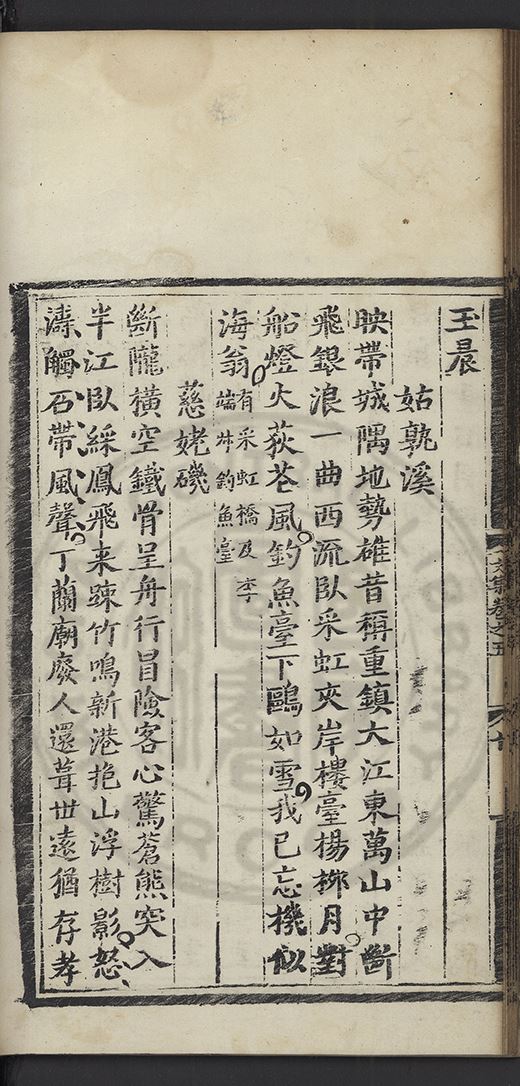 王晨
姑孰溪
映帶城隅地勢雄昔稱重鎮大江東萬山中斷
飛銀浪一曲西流臥采虹夾岸樓臺楊柳月對
船燈火荻花風釣魚臺下鷗如雪我已忘機似
海翁有采虹橋及李
端叔釣魚臺
慈姥磯
斷隴橫空鐵骨呈舟行冒險客心驚蒼熊突入
半江臥綵鳳飛来踈竹鳴新港抱山浮樹影怒
濤觸石帶風聲丁蘭廟廢人還葺世遠猶存孝
集卷之五
十